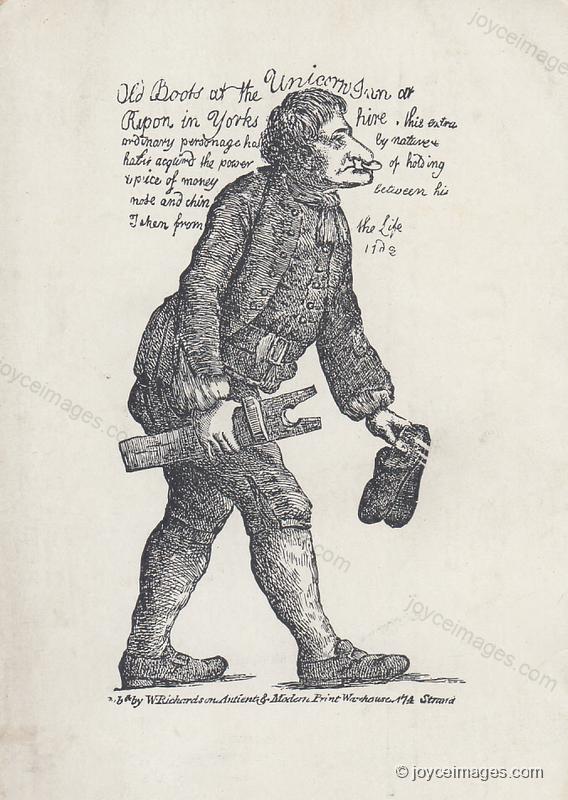 joyceimages.com
Old Boots at the Unicorn Inn at
Ripon in Yorks hire . this extra
ordinary personage has by nature
hatis acquird the power of holding
a peice of money between his
nose and chin
Taken from the Life
joyceimages.com
joyceimages.com
joyceimages.com
joyceimages.com
by W Richardson Antient & Modern Print Warehouse No 74 Strand
© joyceimages.com